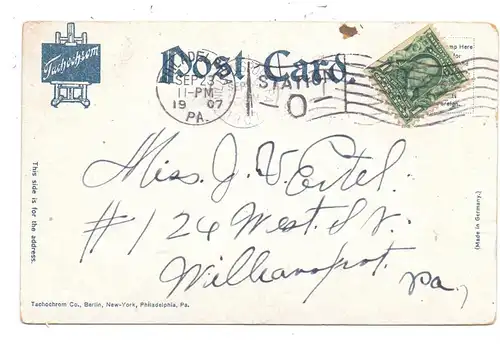 Tachochrom
Post Card.
SEP 23
11-PM
1907
PA.
STATION
O
This side is for the address.
Miss. J. V. Ertel.
#124 West. St.
Williamsport. Pa,
(Made in Germany.)
Tachochrom Co., Berlin, New-York, Philadelphia, Pa.